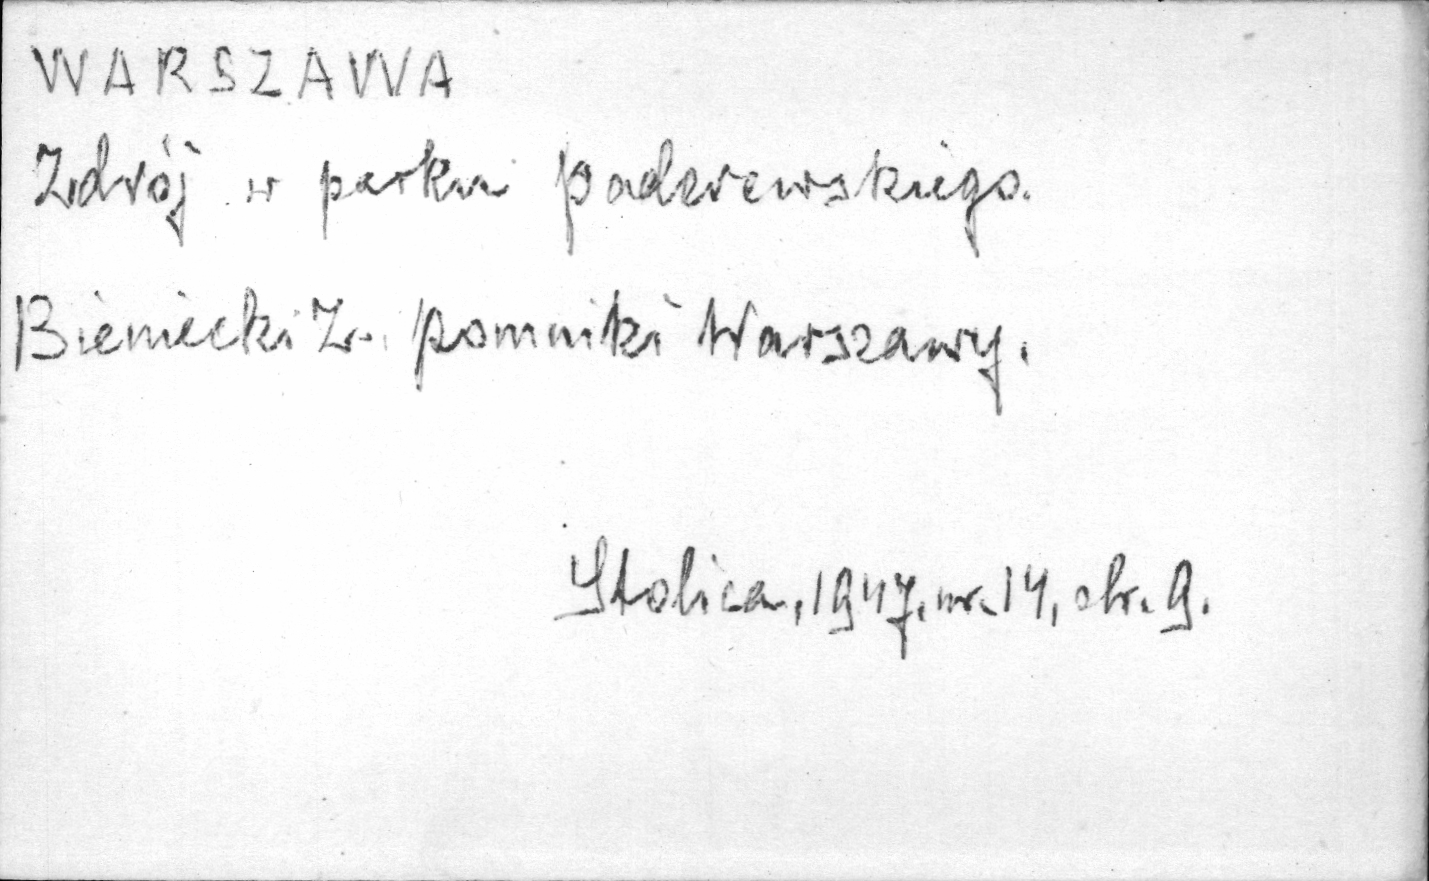 WARSZAWA
Zdrój w parku Paderewskiego.
Bieniecki Z. Pomniki Warszawy.
Stolica, 1947, nr. 14, str. 9.